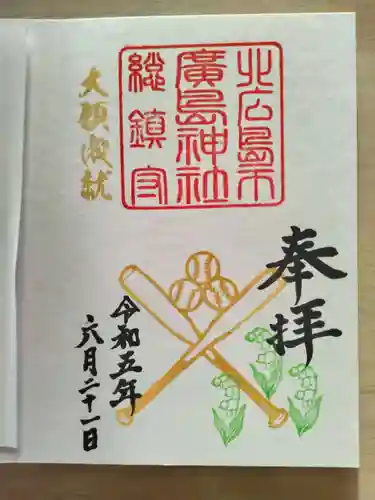 奉拝
北広島市
廣島神社
総鎮守
大願成就
令和五年
六月二十一日